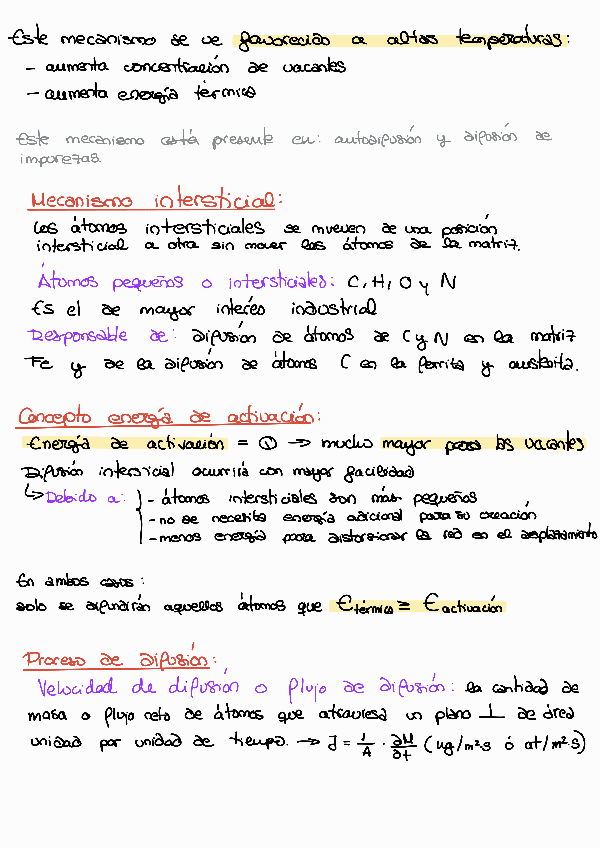 Este mecanismo se ve favorecido a altas temperaturas:
- aumenta concentración de vacantes
- aumenta energía térmica
Este mecanismo está presente en: autodifusión y difusión de
impurezas.
Mecanismo intersticial:
Los átomos intersticiales se mueven de una posición
intersticial a otra sin mover los átomos de la matriz.
Átomos pequeños o intersticiales: C, H, O y N
Es el de mayor interés industrial
Responsable de: difusión de átomos de C y N en la matriz
Fe y de la difusión de átomos C en la ferrita y austenita.
Concepto energía de activación:
Energía de activación = ① → mucho mayor para las vacantes
Difusión intersticial ocurrirá con mayor facilidad
↳ Debido a: - átomos intersticiales son más pequeños
- no se necesita energía adicional para su creación
- menos energía para distorsionar la red en el desplazamiento
En ambos casos:
solo se difundirán aquellos átomos que Etérmica ≥ Eactivación
Proceso de difusión:
Velocidad de difusión o flujo de difusión: la cantidad de
masa o flujo neto de átomos que atraviesa un plano ⊥ de área
unidad por unidad de tiempo. → J = 1/A · ∂M/∂t (kg/m²s ó at/m²s)